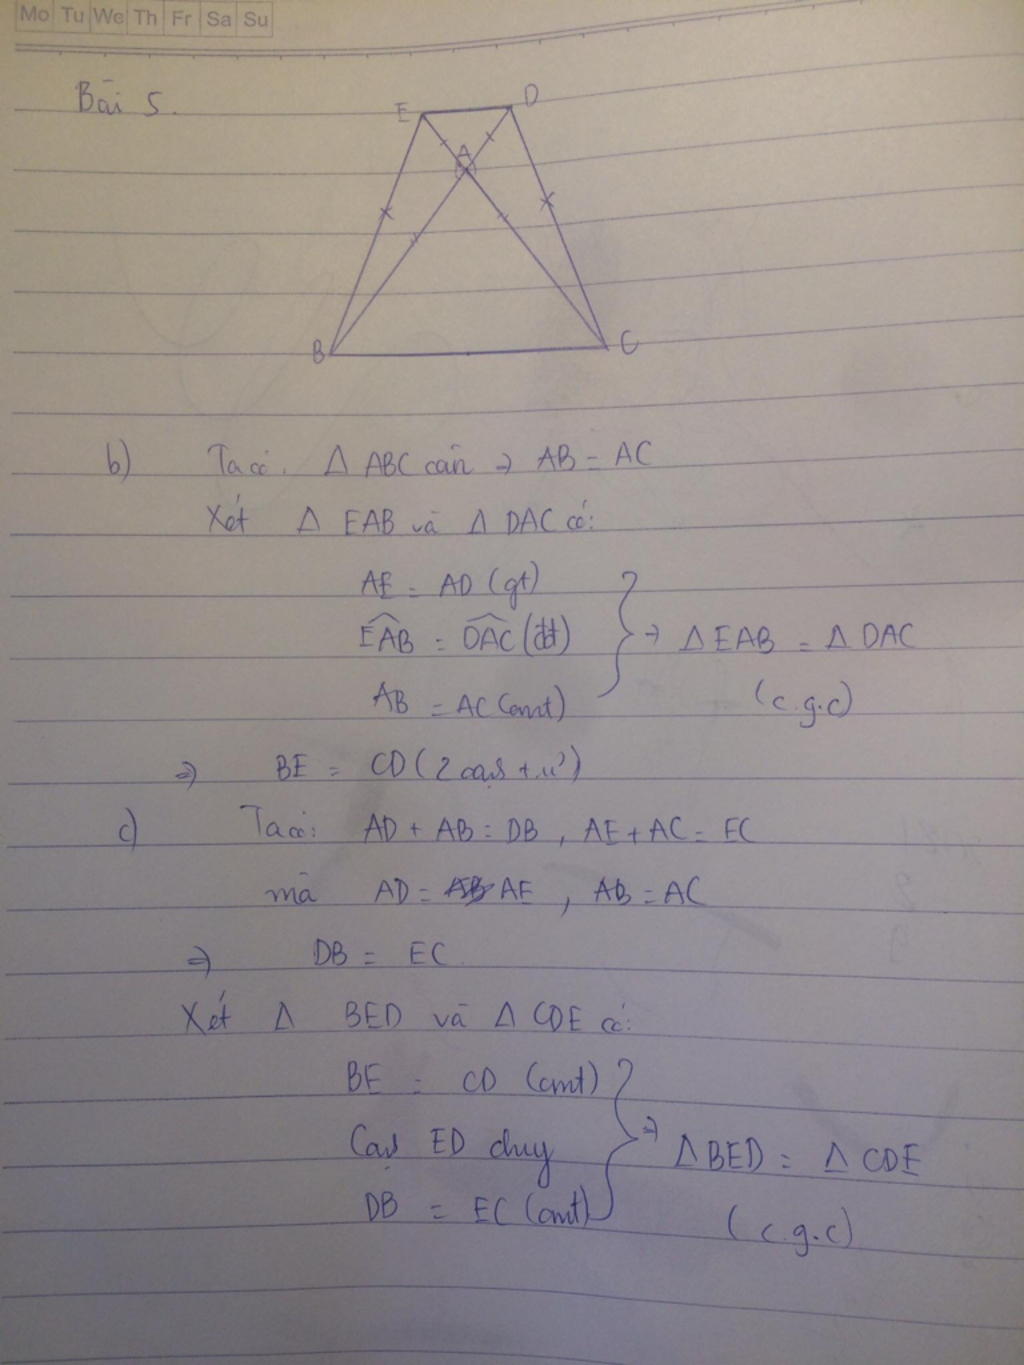 Mo Tu We Th Fr Sa Su
Bài 5.
E D
A
B C
b) Ta có. Δ ABC cân → AB = AC
Xét Δ EAB và Δ DAC có:
AE = AD (gt)
EAB = DAC (đđ) → Δ EAB = Δ DAC
AB = AC (cmt) (c.g.c)
⇒ BE = CD (2 cạh t.ư)
c) Ta có: AD + AB = DB, AE + AC = EC
mà AD = AE, AB = AC
⇒ DB = EC
Xét Δ BED và Δ CDE có:
BE = CD (cmt)
Cạh ED chug ⇒ Δ BED = Δ CDE
DB = EC (cmt) (c.g.c)